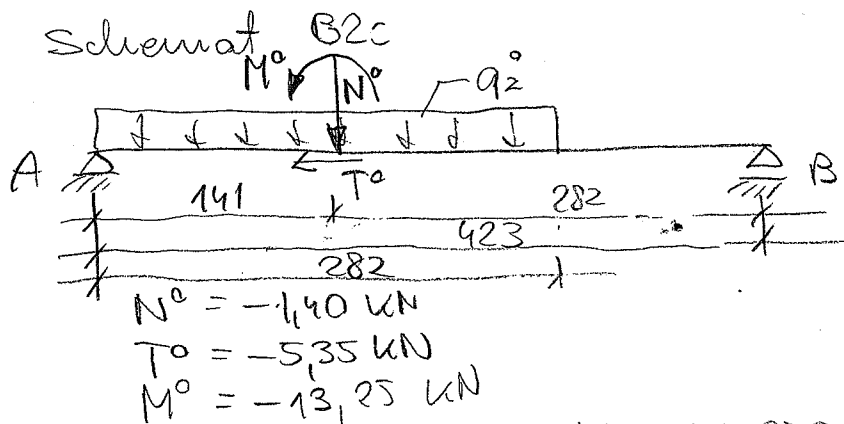 Schemat B2c
M° N° q2°
A T° B
141 282
423
282
N° = -1,40 KN
T° = -5,35 KN
M° = -13,25 KN